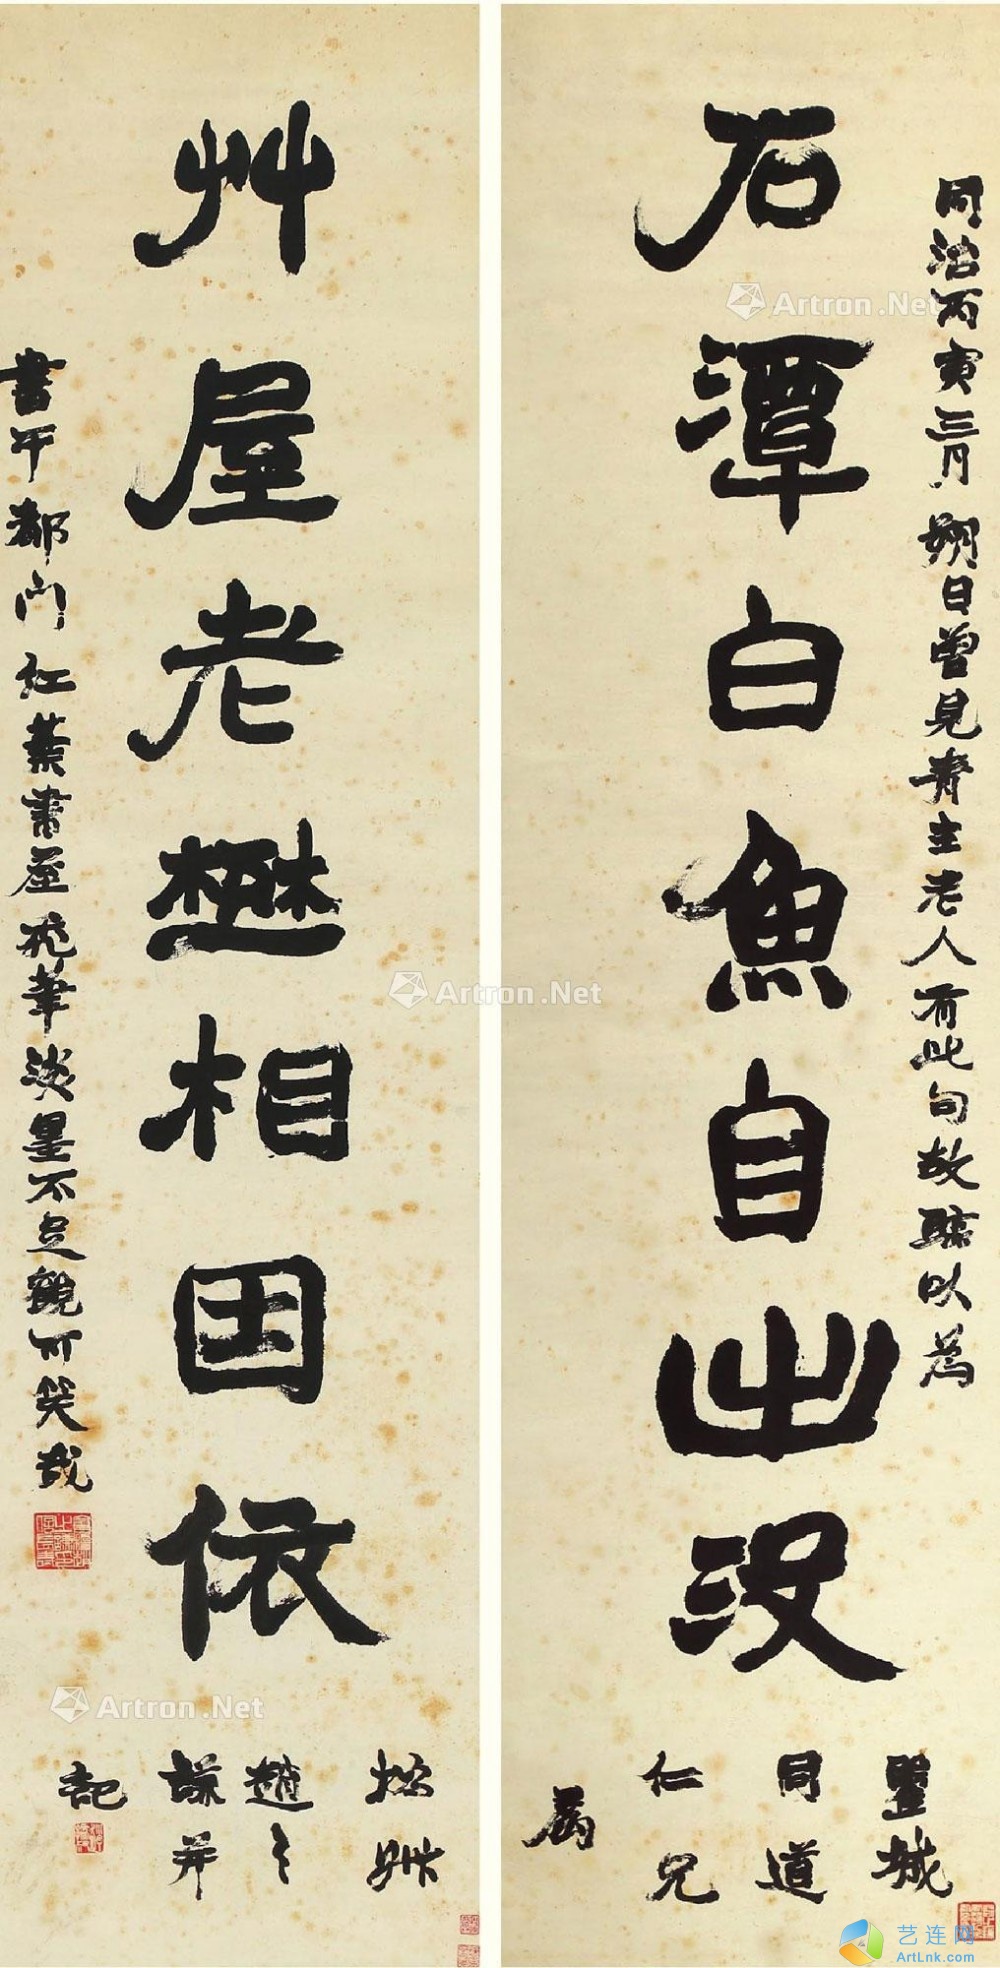 石潭白魚自出没
同治丙寅三月朔日曾見青主老人有此句故臨以為
城
同道
仁兄
屬
艸屋老相因依
書于都門紅葉書屋禿筆淡墨不足觀可笑哉
撝叔
趙之
謙并
記
Artron.Net
Artron.Net
Artron.Net
艺连网
ArtLnk.com